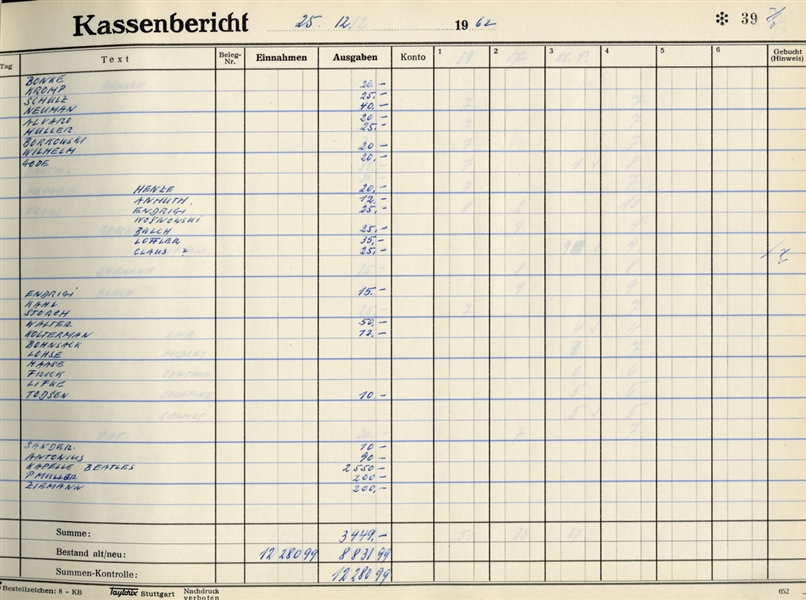 Kassenbericht 25. 12. 1962 ✻ 39
Tag Text Beleg-Nr. Einnahmen Ausgaben Konto 1 2 3 4 5 6 Gebucht (Hinweis)
BONKE 20.-
KROMP 25.-
SCHULZ 40.-
NEUMAN
ALVARO 20-
MÜLLER 25.-
BORKOWSKI
WILHELM 20-
GODE 20.-
HENZE 20,-
ANMUTH. 12,-
ENDRIGI 25,-
WOSNOWSKI
BULCH 25.-
LOFFLER 35,-
CLAUS ? 25,-
ENDRIGI 15.-
KAHL
STORCH
WALTER 50,-
KOLTERMAN 12,-
BOHNSACK
LOHSE
HAASE
FRICK
LIFKE
TODSEN 10.-
SANDER. 10-
ANTONIUS 90-
KAPELLE BEATLES 2550-
P.MÜLLER 200-
ZIEMANN 200,-
Summe: 3449.-
Bestand alt/neu: 12 280 99 8 831 99
Summen-Kontrolle: 12 280 99
Bestellzeichen: 8 - KB Taylorix Stuttgart Nachdruck verboten 652